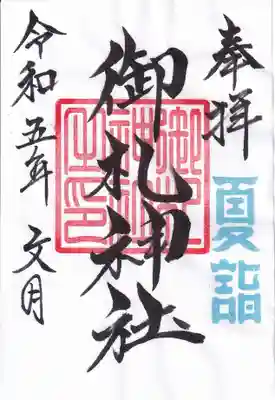 奉拝
夏詣
御札神社
令和五年 文月